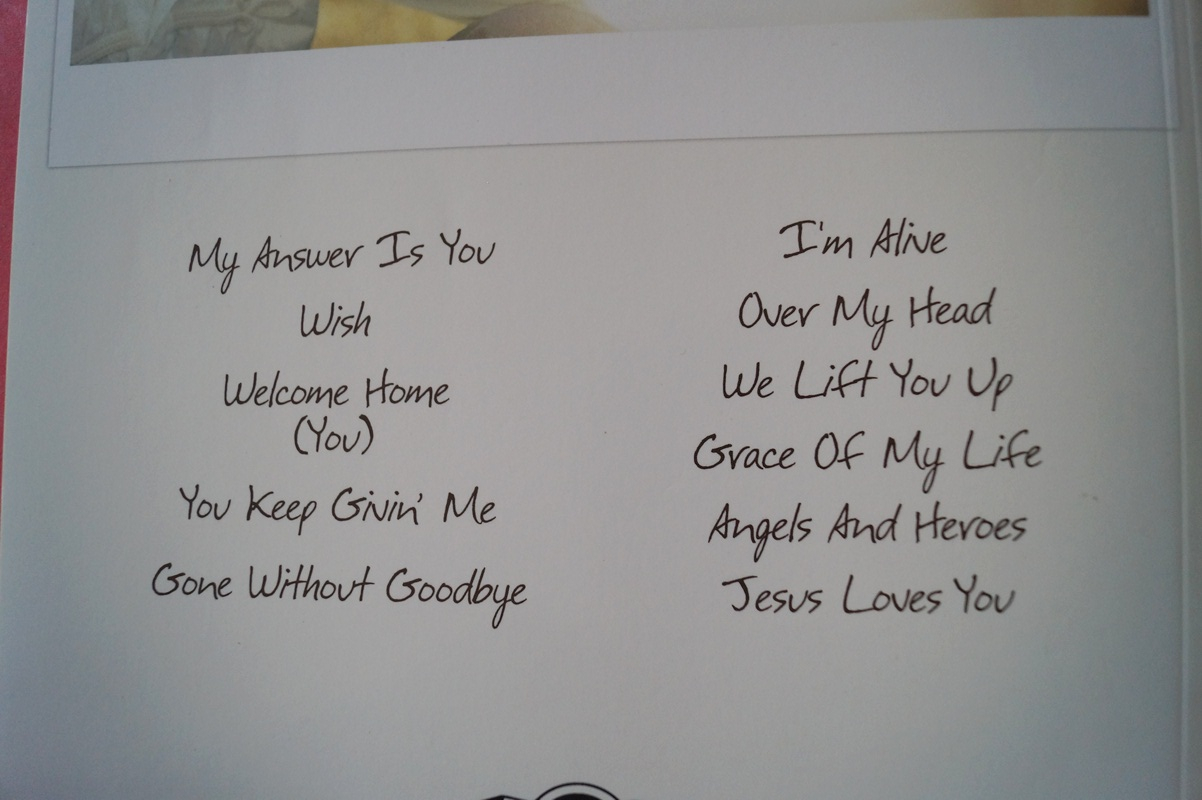 My Answer Is You
Wish
Welcome Home
(You)
You Keep Givin' Me
Gone Without Goodbye
I'm Alive
Over My Head
We Lift You Up
Grace Of My Life
Angels And Heroes
Jesus Loves You